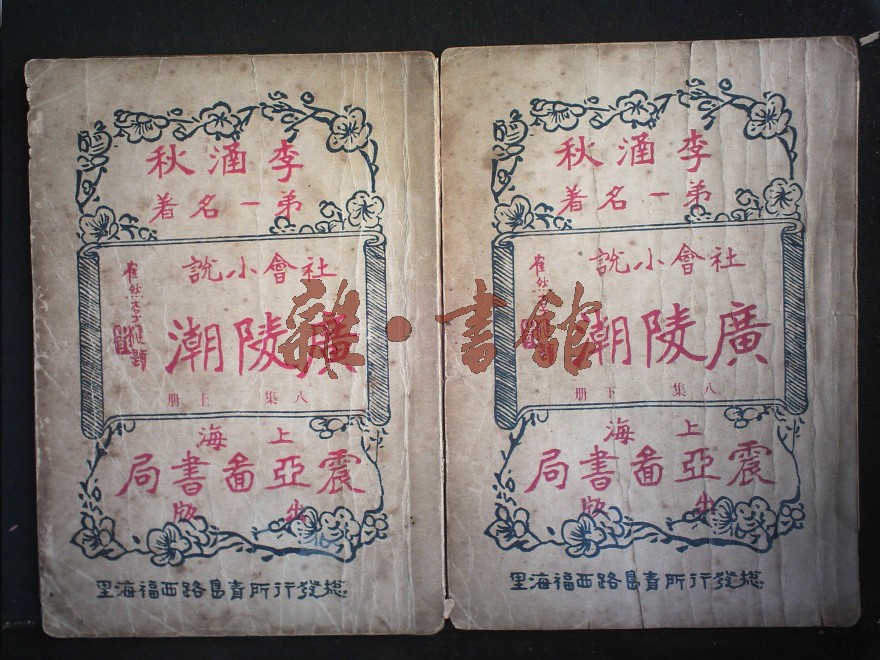 李涵秋
弟一名著
社會小說
廣陵潮
崔然李健題
八集 上册
上海
震亞啚書局
出版
總發行所青島路西福海里
李涵秋
弟一名著
社會小說
廣陵潮
崔然李健題
八集 下册
上海
震亞啚書局
出版
總發行所青島路西福海里
雜·書館